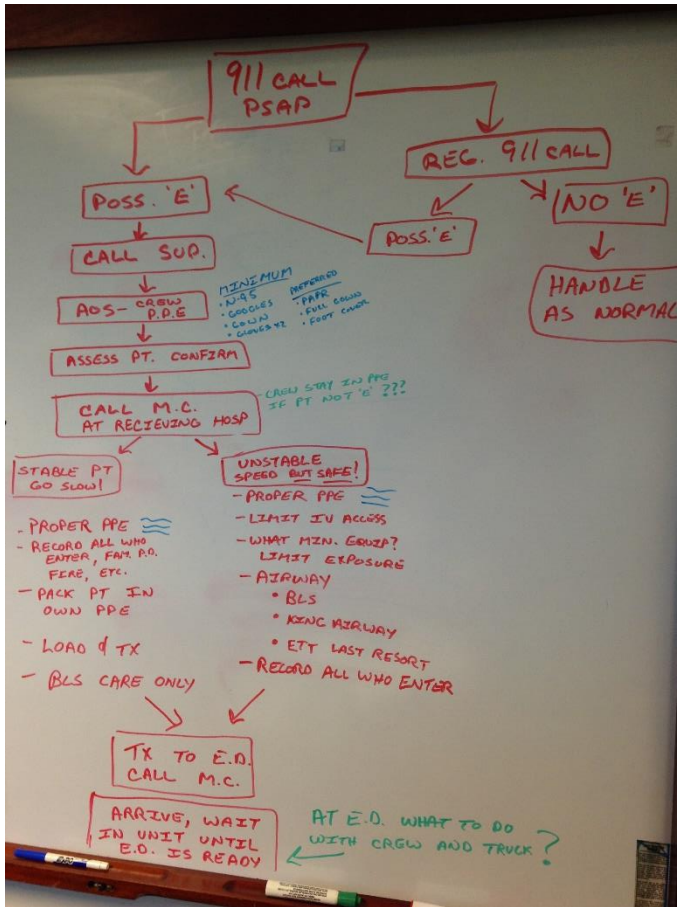 911 CALL
PSAP
REG. 911 CALL
POSS. 'E'
NO 'E'
POSS. 'E'
CALL SUP.
HANDLE
AS NORMAL
AOS- CREW
P.P.E
MINIMUM
• N-95
• GOGGLES
• GOWN
• GLOVES x2
PREFERRED
• PAPR
• FULL GOWN
• FOOT COVER
ASSESS PT. CONFIRM
CALL M.C.
AT RECIEVING HOSP
- CREW STAY IN PPE
IF PT NOT 'E' ???
STABLE PT
GO SLOW!
- PROPER PPE
- RECORD ALL WHO
ENTER, FAM. P.D.
FIRE, ETC.
- PACK PT IN
OWN PPE
- LOAD & TX
- BLS CARE ONLY
UNSTABLE
SPEED BUT SAFE!
- PROPER PPE
- LIMIT IV ACCESS
- WHAT MIN. EQUIP?
LIMIT EXPOSURE
- AIRWAY
• BLS
• KING AIRWAY
• ETT LAST RESORT
- RECORD ALL WHO ENTER
TX TO E.D.
CALL M.C.
ARRIVE, WAIT
IN UNIT UNTIL
E.D. IS READY
AT E.D. WHAT TO DO
WITH CREW AND TRUCK?